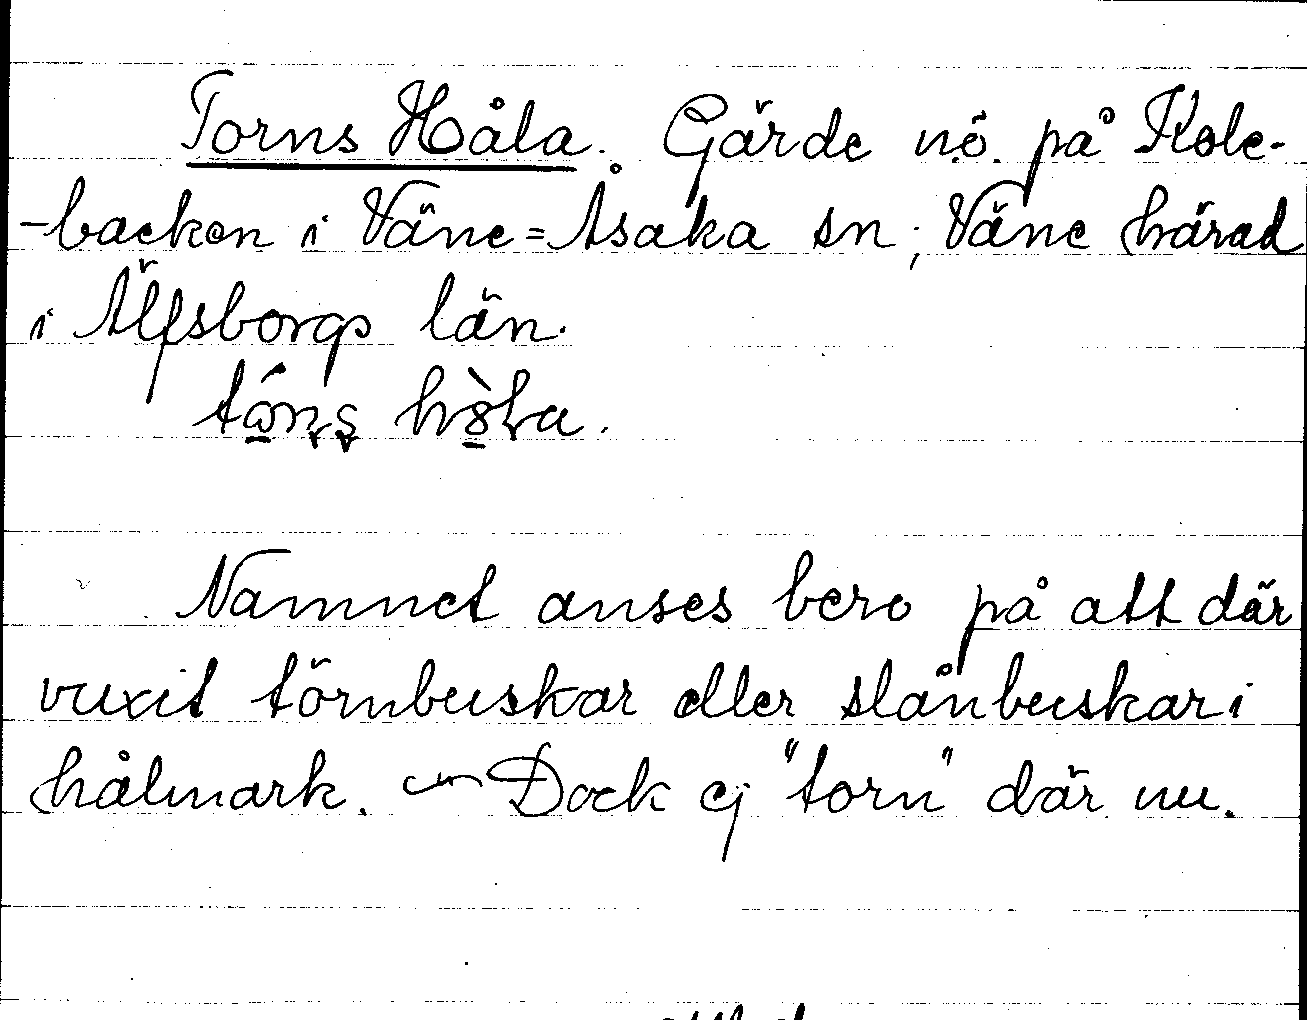 Torns Håla. Gärde n.ö. på Kole-
-backen i Väne=Åsaka sn; Väne härad
i Älfsborgs län.
Namnet anses bero på att där
vuxit törnbuskar eller slånbuskar i
hålmark. — Dock ej "torn" där nu.